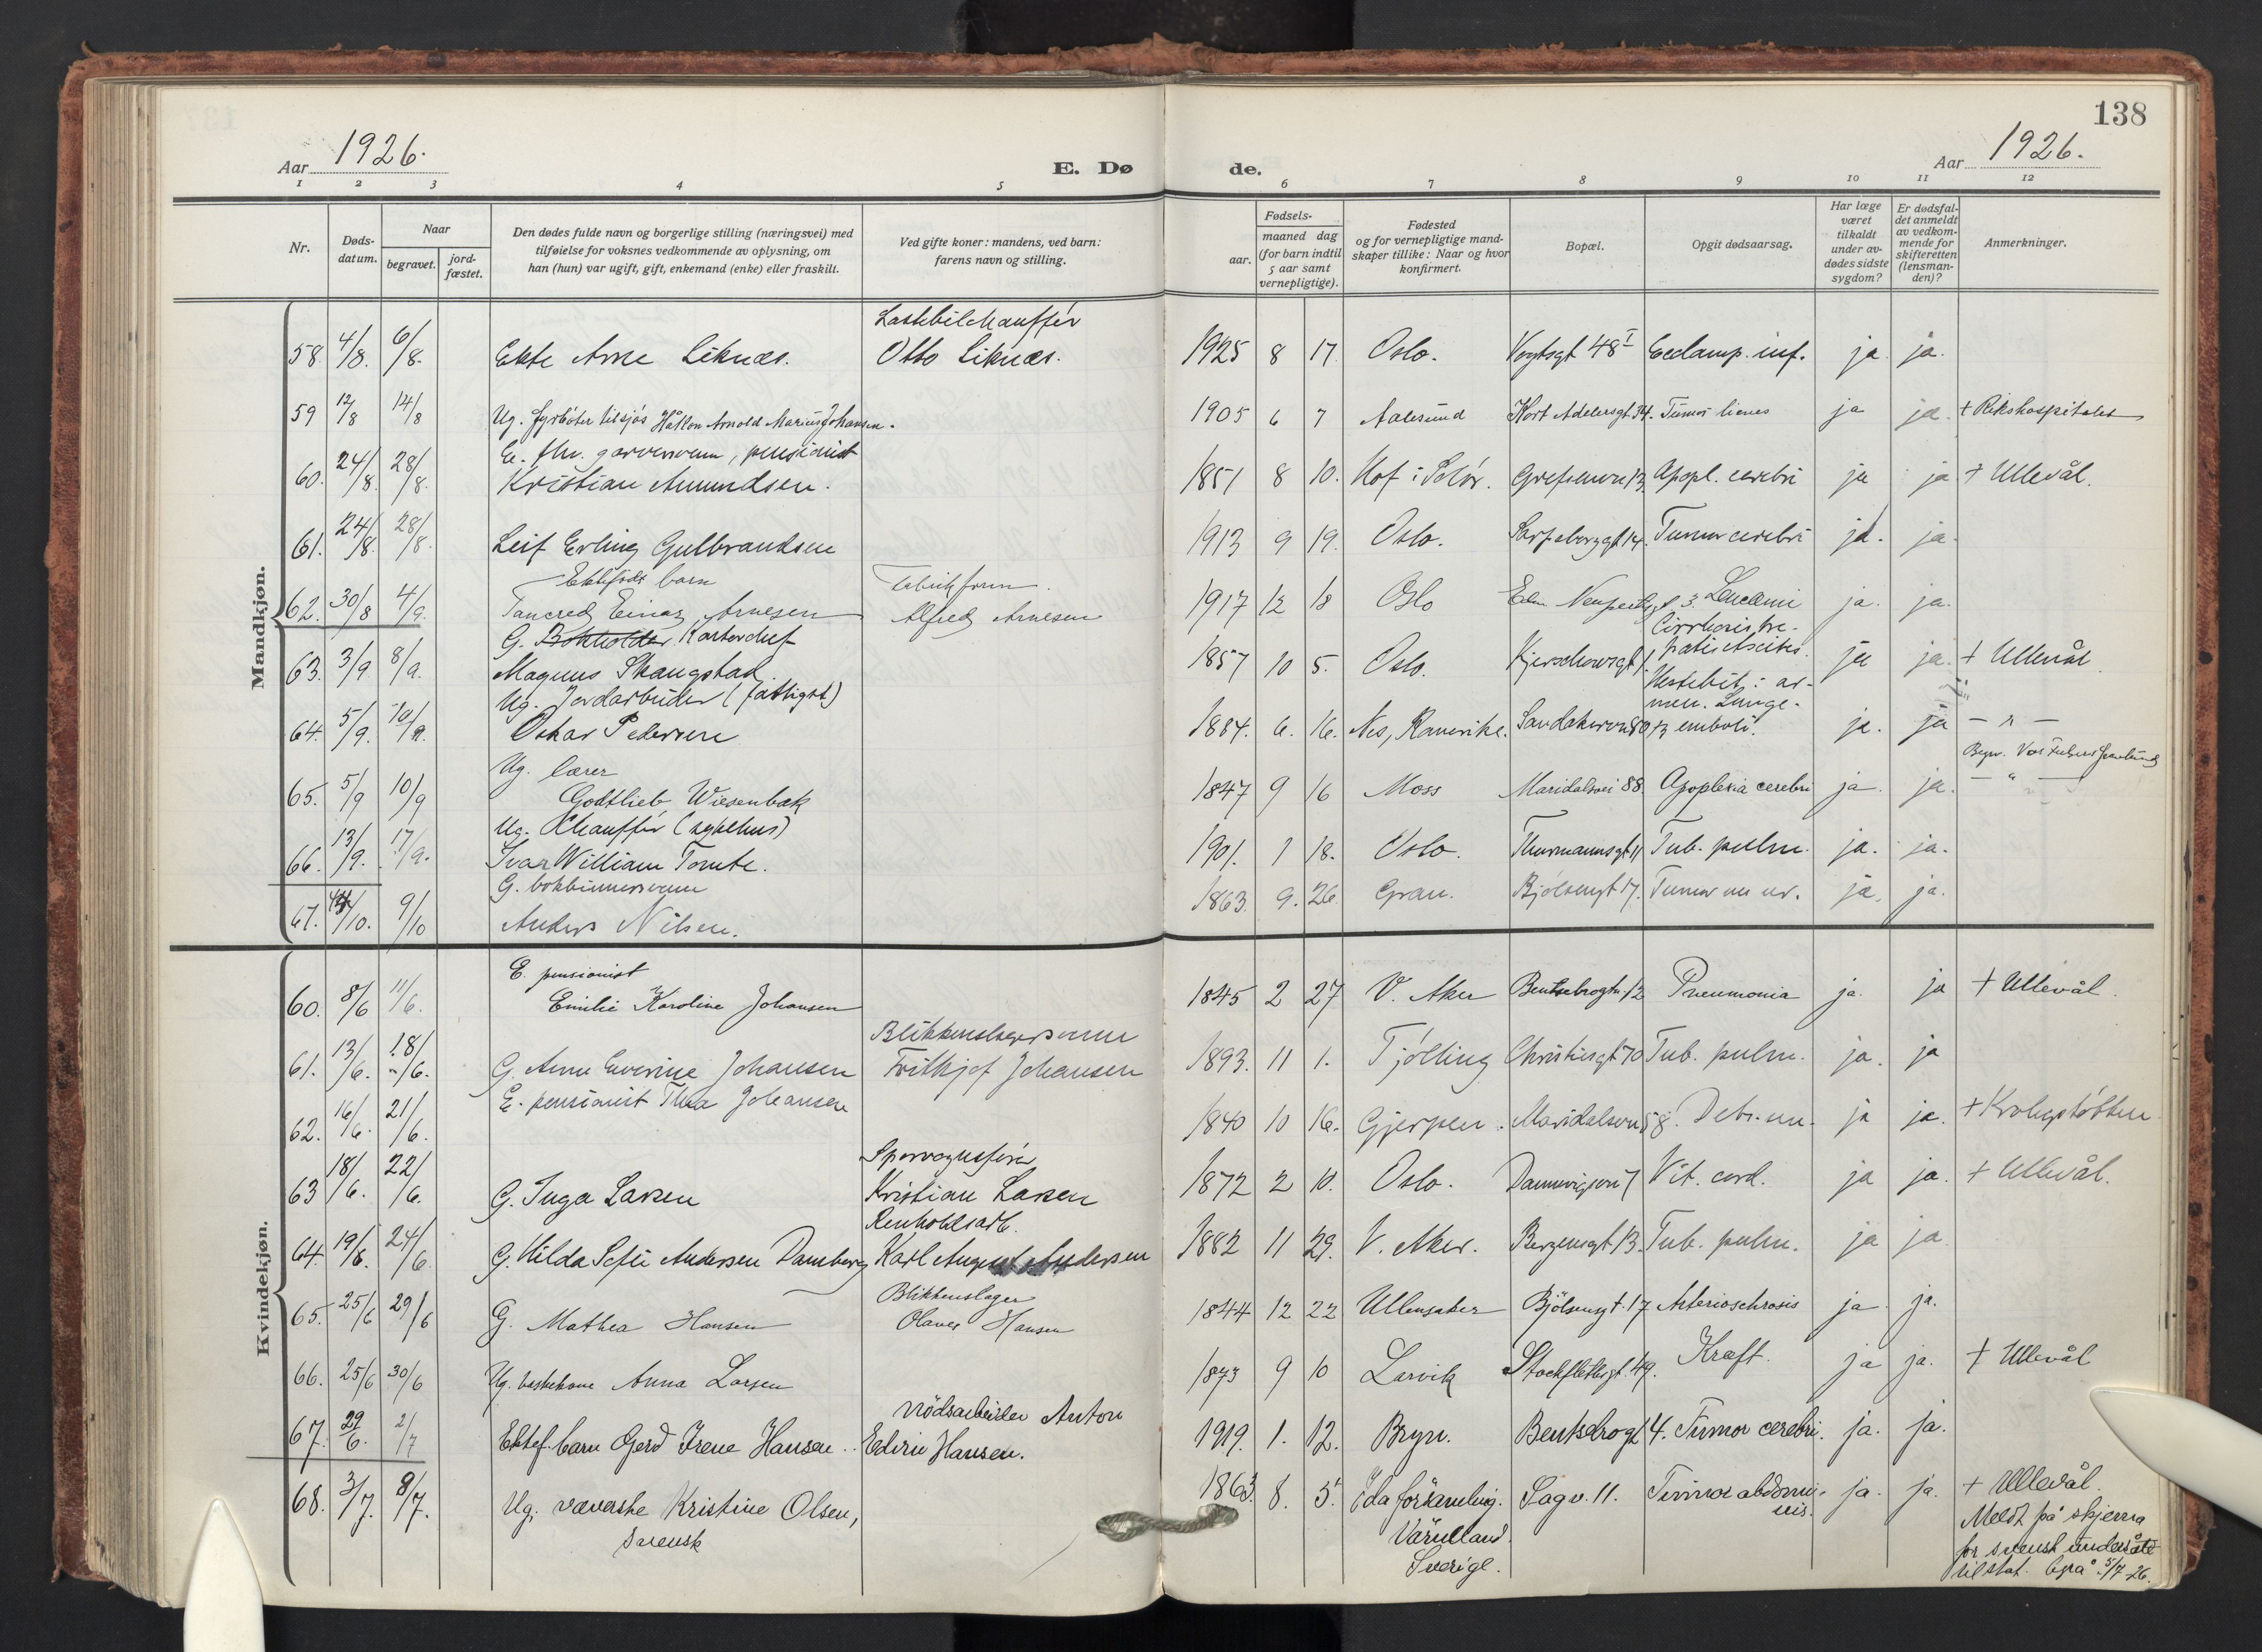 138
Aar 1926.
E. Dø
de.
Aar 1926.
1 2 3 4 5 6 7 8 9 10 11 12
Nr.
Døds-
datum.
Naar
begravet.
jord-
fæstet.
Den dødes fulde navn og borgerlige stilling (næringsvei) med
tilføielse for voksnes vedkommende av oplysning, om
han (hun) var ugift, gift, enkemand (enke) eller fraskilt.
Ved gifte koner: mandens, ved barn:
farens navn og stilling.
Fødsels-
aar.
maaned dag
(for barn indtil
5 aar samt
vernepligtige).
Fødested
og for vernepligtige mand-
skaper tillike: Naar og hvor
konfirmert.
Bopæl.
Opgit dødsaarsag.
Har læge
været
tilkaldt
under av-
dødes sidste
sygdom?
Er dødsfal-
det anmeldt
av vedkom-
mende for
skifteretten
(lensman-
den)?
Anmerkninger.
Mandkjøn.
Lastebilchauffør
58. 4/8. 6/8. Ekte Arne Liknæs. Otto Liknæs. 1925 8 17 Oslo. Vogtsgt 48 I Eclamp. inf. ja. ja.
59 12/8 14/8 Ug. fyrbøter tilsjøs Håkon Arnold Marius Johansen. 1905 6 7 Aalesund Kort Adelersgt 34. Tumor lienes ja ja. + Rikshospitalet
E. fhv. garversvenn, pensionist
60. 24/8. 28/8. Kristian Amundsen. 1851 8 10. Hof i Solør. 13 Apopl. cerebri ja ja + Ullevål.
61. 24/8. 28/8. Leif Erling Gulbrandsen 1913 9 19. Oslo. Sarpsborggt 14. Tumor cerebri ja. ja.
Ektefødt barn
62. 30/8 4/9. Tancred Einar Arnesen Alfred Arnesen 1917 12 18 Oslo Edm Neupertsgt. 3. Leucemi ja. ja.
G. Bokholder Kontorchef Cirrhosis he-
63. 3/9 8/9. Magnus Skaugstad. 1857 10 5. Oslo. Kjerschowsgt 1. patis Ascites. ja ja. + Ullevål.
Ug. Jordarbeider (fattigst) Hestebit i ar-
men. Lunge-
64. 5/9. 10/9. Oskar Pedersen 1884. 6. 16. Nes, Romerike. Sandakerv 80/3 emboli. ja. ja — " —
Ug. lærer
65. 5/9 10/9 Godtlieb Wiesenbak 1847 9 16 Moss Maridalsvei 88 Apoplexia cerebri ja. ja. — " —
Ug. Chauffør (sykehus)
66. 13/9. 17/9. Ivar William Tomte. 1901. 1 18. Oslo. Thurmannsgt 11 Tub. pulm. ja. ja.
G. bokbindersvenn
67. /10. 9/10 Anders Nilsen. 1863. 9. 26 Gran. Bjølsengt 17. Tumor ja. ja.
Kvindekjøn.
E. pensionist
60. 8/6 11/6. Emilie Karoline Johansen 1845 2 27 V. Aker Bentsebrogtn. 12 Pneumonia ja. ja + Ullevål.
Blikkenslagersvenn
61. 13/6. 18/6. G. Anne Severine Johansen Fritkjof Johansen 1893. 11 1. Tjølling Christiesgt 70 Tub. pulm. ja. ja
62. 16/6. 21/6. E. pensionist Thea Johansen 1840 10 16. Gjerpen. Maridalsvn 58. Debr. sen. ja ja. + Krohgstøtten
Sporvognsfører
63 18/6. 22/6. G. Inga Larsen Kristian Larsen 1872 2 10. Oslo. Dannevigsvn 7 Vit. cord. ja ja. + Ullevål.
Renholdsarb.
64. 19/6. 24/6 G. Hilda Sofie Andersen Damberg Karl August Andersen 1882 11 29. V. Aker. Bergensgt 13. Tub. pulm. ja ja
Blikkenslager
65. 25/6 29/6 G. Mathea Hansen Olaves Hansen 1844 12 22 Ullensaker Bjölsengt. 17 Arteriosclrosis ja ja.
66. 25/6 30/6 Ug. vaskekone Anna Larsen 1873 9 10 Larvik Stockflethsgt. 49. Kræft. ja ja. + Ullevål
Nödsarbeider Anton
67. 29/6. 2/7 Ektef. barn Gerd Irene Hansen Edvin Hansen. 1919. 1. 12. Bryn. Bentsebrogt 4. Tumor cerebri. ja. ja.
68. 3/7. 8/7. Ug. væverske Kristine Olsen, 1863. 8. 5. Eda församling. Sagv. 11. Tumor abdomi- ja. ja. + Ullevål.
svensk Värmland. nis. Meldt på skjema
Sverige. for svensk undersått
5/7 26.